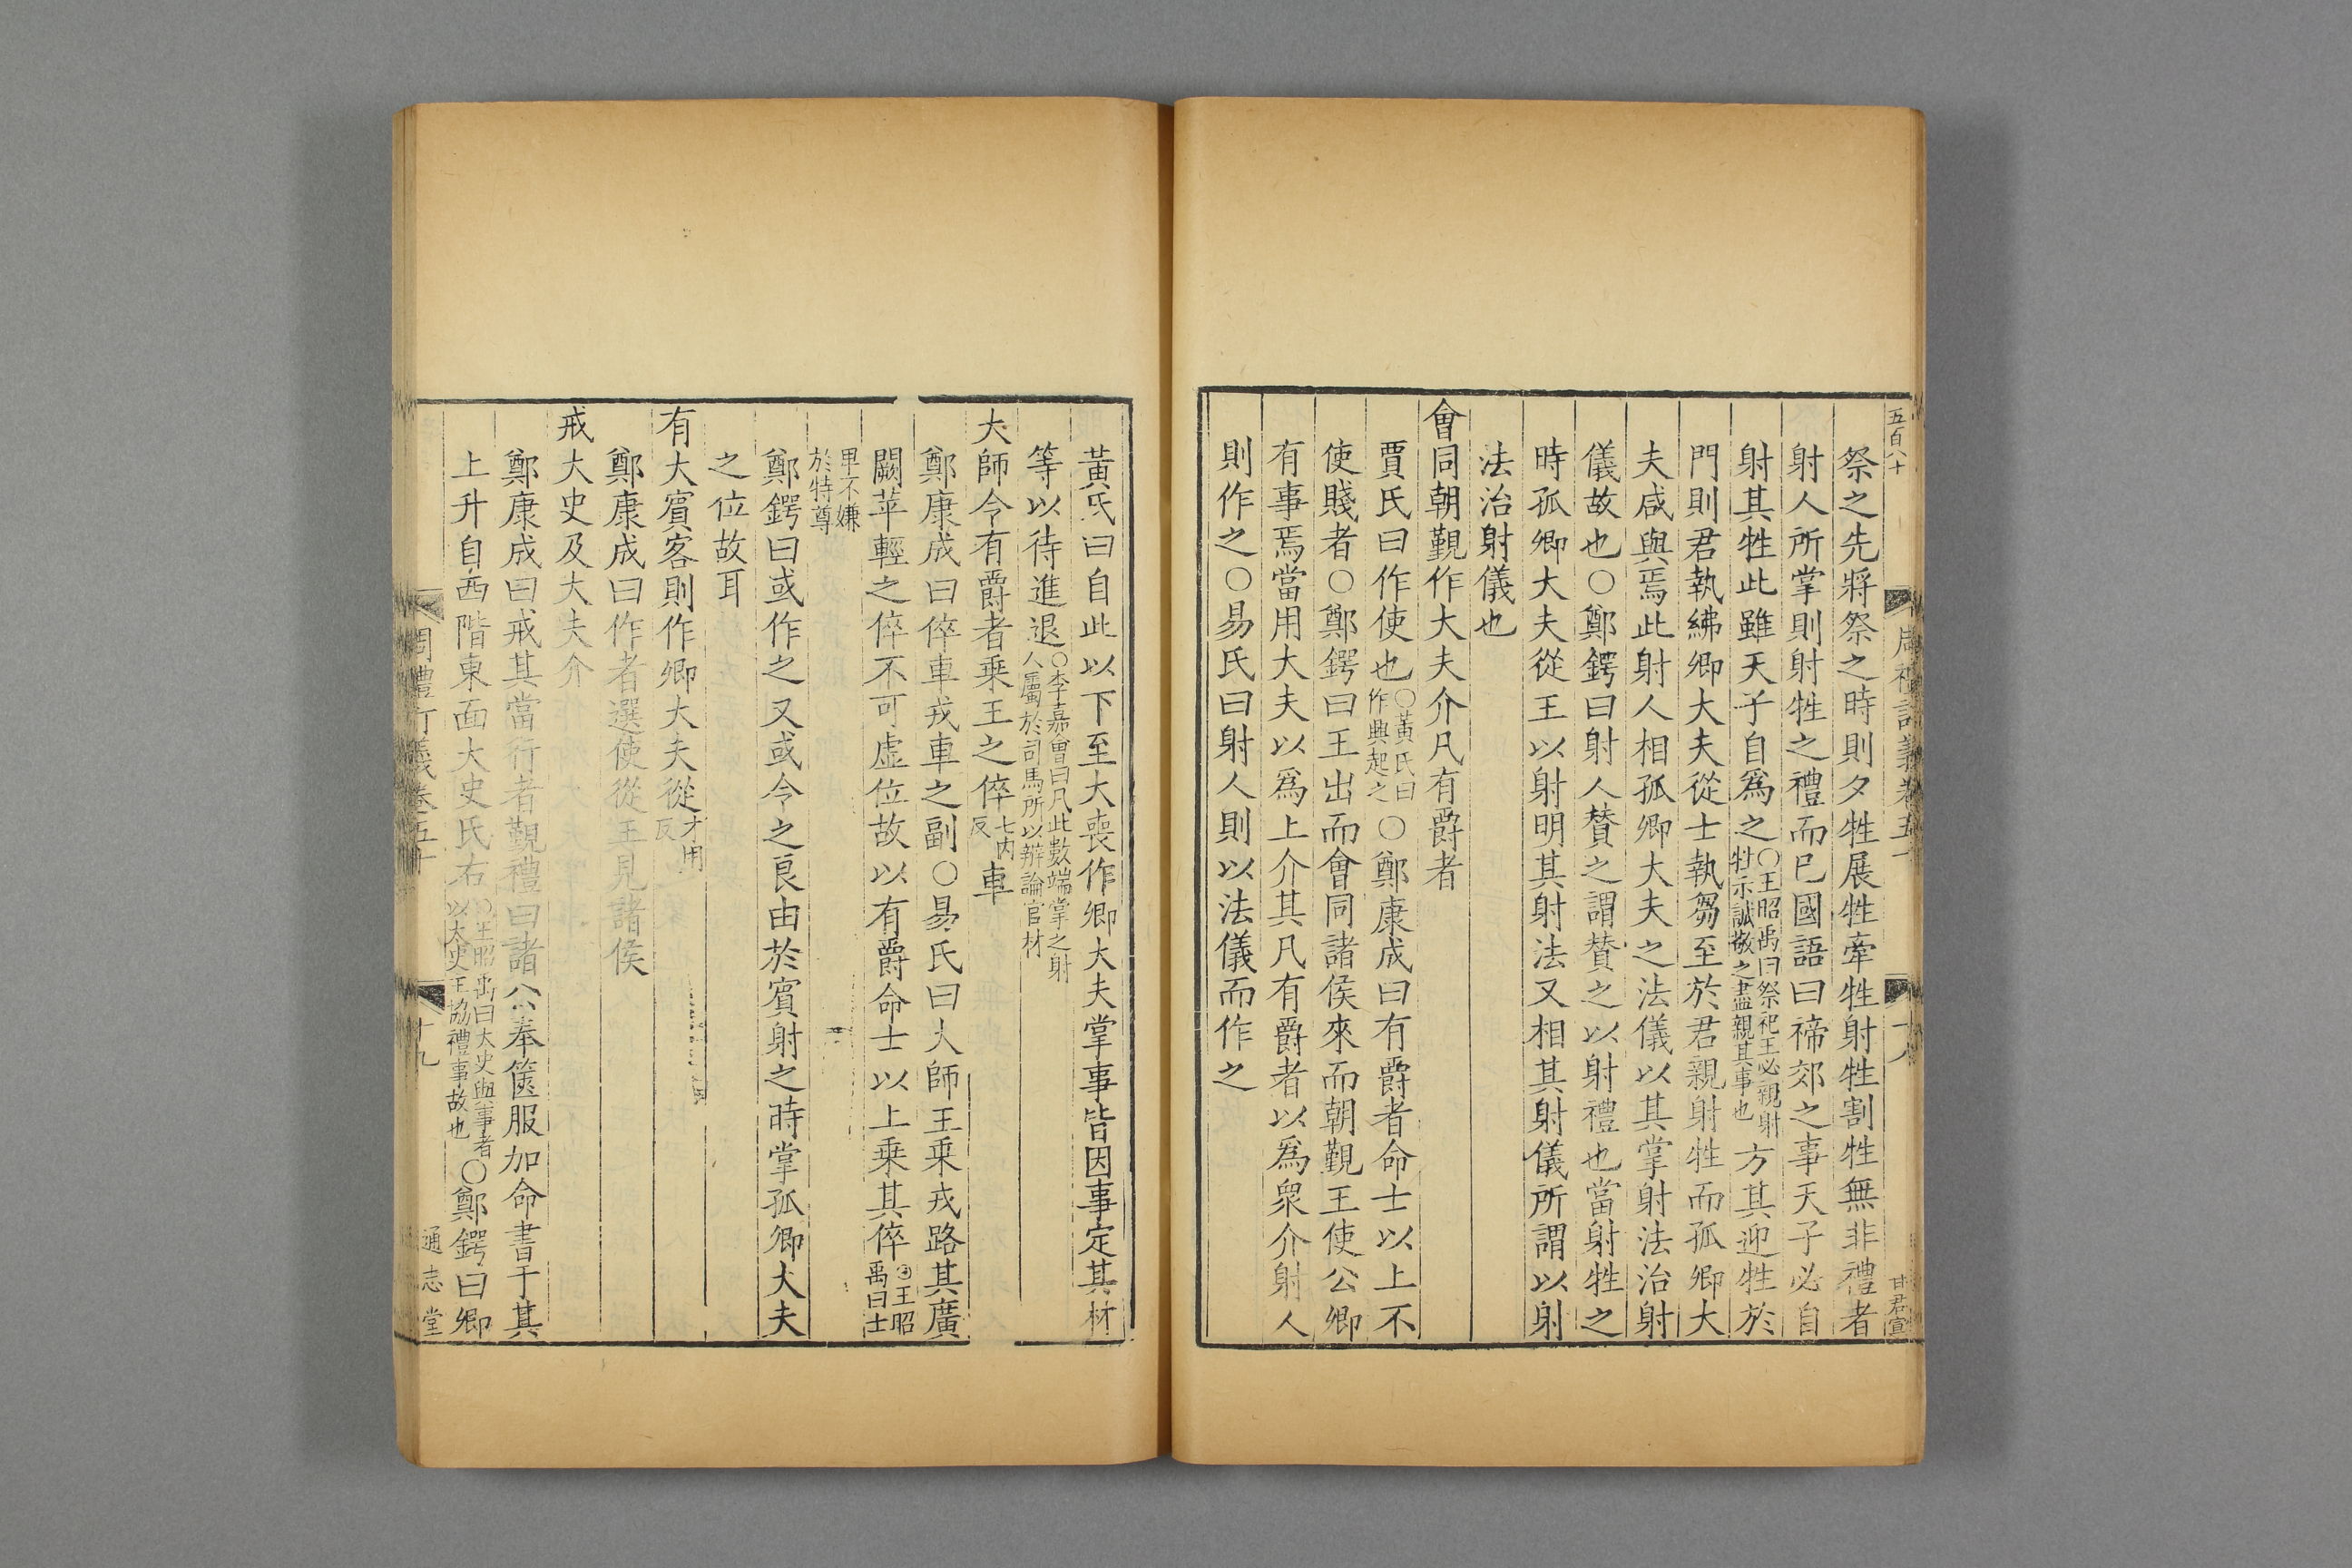 五百八十
周禮訂義卷五十
十八
甘君宣
祭之先將祭之時則夕牲展牲牽牲射牲割牲無非禮者
射人所掌則射牲之禮而已國語曰禘郊之事天子必自
射其牲此雖天子自爲之○王昭禹曰祭祀王必親射牲示誠敬之盡親其事也方其迎牲於
門則君執紼卿大夫從士執芻至於君親射牲而孤卿大
夫咸與焉此射人相孤卿大夫之法儀以其掌射法治射
儀故也○鄭鍔曰射人贊之謂贊之以射禮也當射牲之
時孤卿大夫從王以射明其射法又相其射儀所謂以射
法治射儀也
會同朝覲作大夫介凡有爵者
賈氏曰作使也○黃氏曰作興起之○鄭康成曰有爵者命士以上不
使賤者○鄭鍔曰王出而會同諸侯來而朝覲王使公卿
有事焉當用大夫以爲上介其凡有爵者以爲衆介射人
則作之○易氏曰射人則以法儀而作之
黃氏曰自此以下至大喪作卿大夫掌事皆因事定其材
等以待進退○李嘉會曰凡此數端掌之射人屬於司馬所以辨論官材
大師令有爵者乗王之倅七内反車
鄭康成曰倅車戎車之副○易氏曰大師王乗戎路其廣
闕苹輕之倅不可虛位故以有爵命士以上乗其倅○王昭禹曰士
卑不嫌於特尊
鄭鍔曰或作之又或令之良由於賓射之時掌孤卿大夫
之位故耳
有大賓客則作卿大夫從才用反
鄭康成曰作者選使從王見諸侯
戒大史及大夫介
鄭康成曰戒其當行者覲禮曰諸公奉篋服加命書于其
上升自西階東面大史氏右○王昭禹曰大史與事者以大史主協禮事故也○鄭鍔曰卿
周禮訂義卷五十
十九
通志堂